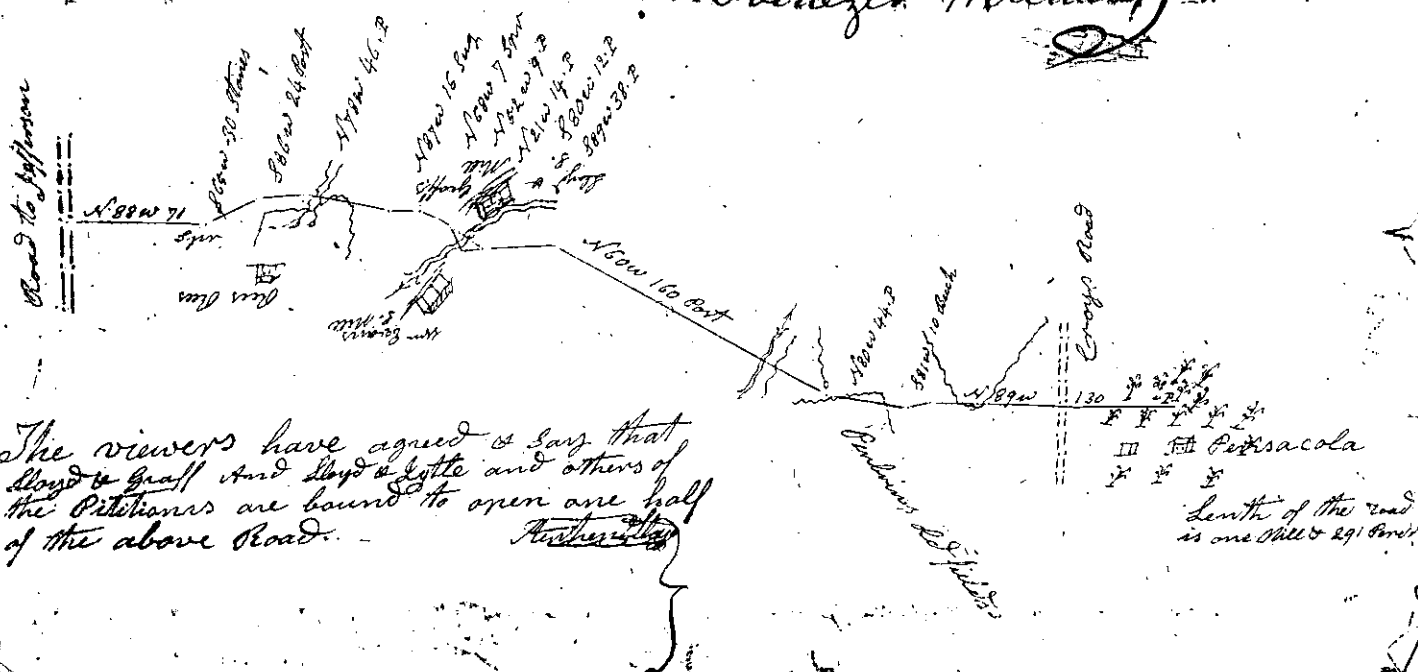 Ebenezer
Road to Jefferson
N 88 W 71
S 65 W 30 Stones
S 86 W 24 Post
N 78 W 46 P
N 87 W 16 Sug
N 68 W 7 Spr
N 52 W 9 P
N 21 W 14 P
S 80 W 12 P
S 89 W 38 P
Spr
Rees Rees
Lloyd &
Graff's
Mill
Wm Evans
S. Mill
N 60 W 160 Post
N 80 W 44 P
S 81 W 10 Buch
N 89 W 130
Croyls Road
Pensacola
Perkins Old fields
Lenth of the road
is one Mill & 291 Perrs
The viewers have agreed & Say that
Lloyd & Graff And Lloyd & Lytle and others of
the Pititionrs are bound to open one half
of the above Road.